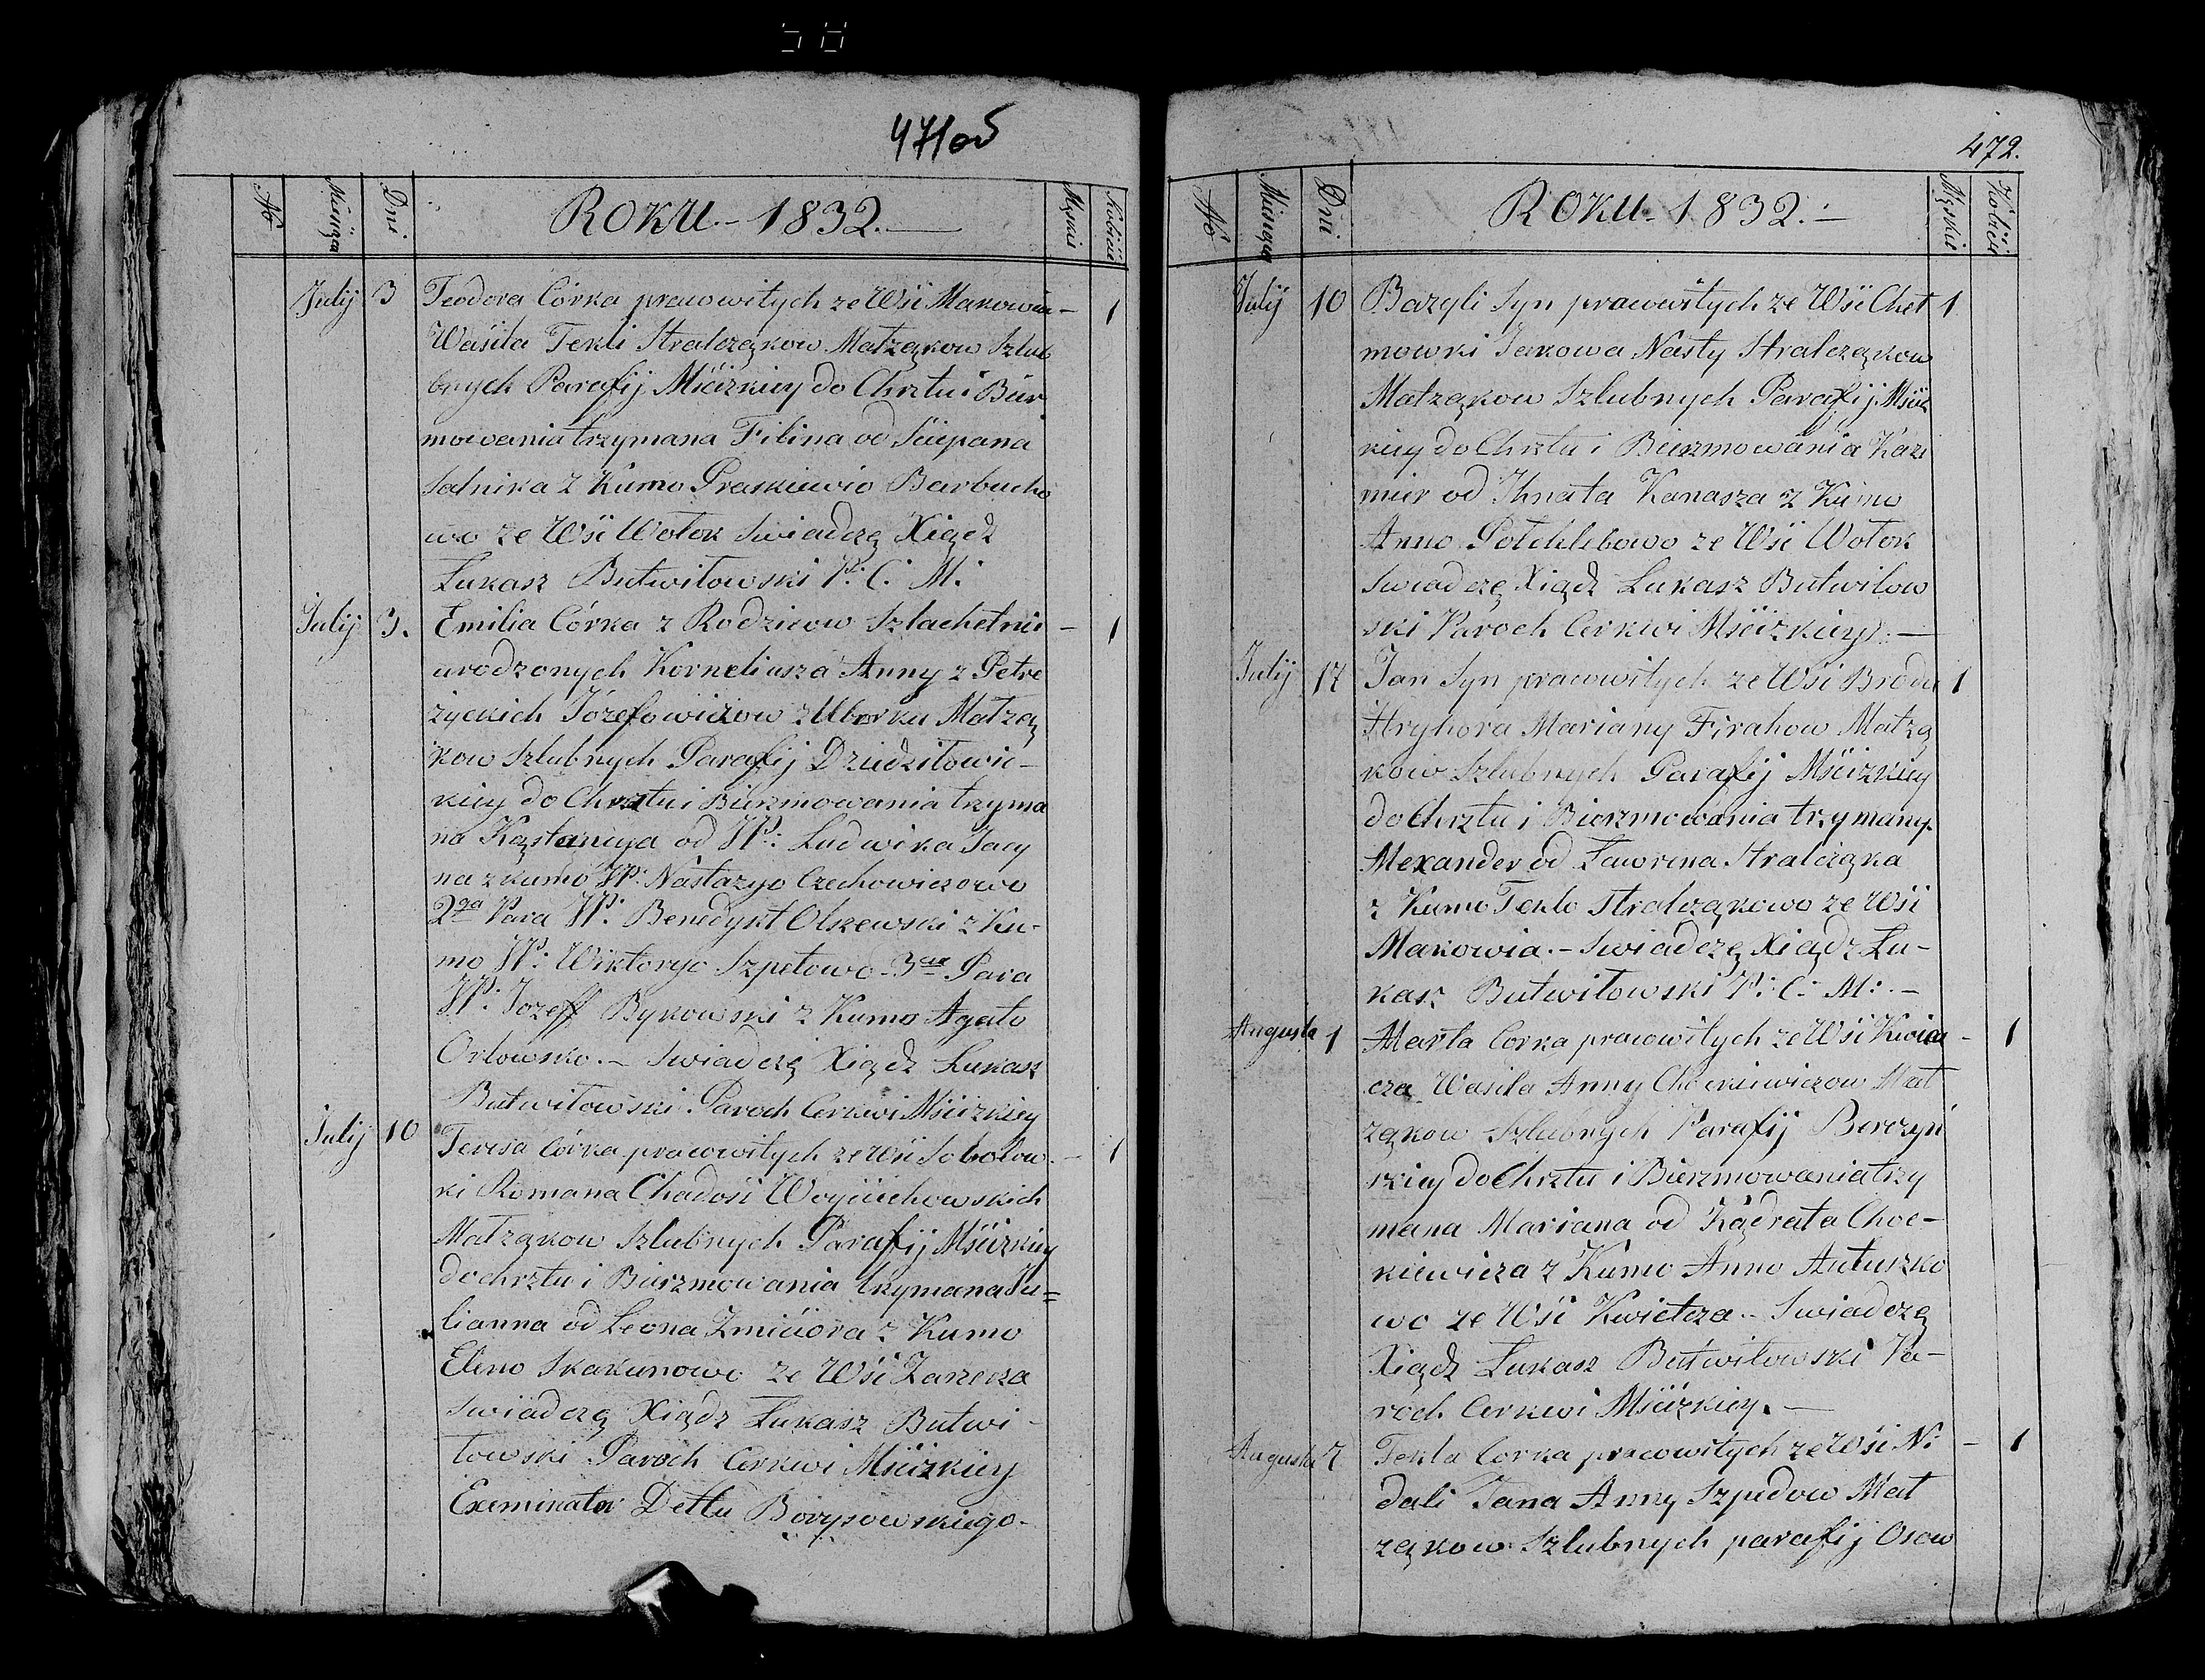 471 об
No Miesiąca Dni ROKU.-1832.— Męskie Kobiece
Julij 3 Teodora Córka pracowitych ze Wsi Makowia — 1
Wasila Tekli Stralcząkow Małżąkow Szlub
bnych Parafij Mścizkiey do Chrztu i Bier
mowania trzymana Filina od Sciepana
Salnika z Kumo Praskiewio Barbucho
wo ze Wsi Wołok Swiadczę Xiądz
Łukasz Butwiłowski P: C: M:
Julij 3. Emilia Córka z Rodzicow Szlachetnie — 1
urodzonych Korneliusza Anny z Petre
życkich Józefowiczow z Uborku Małżą
kow Szlubnych Parafij Dziedziłowic-
kiey do Chrztu i Bierzmowania trzyma
na Kąstancya od JP: Ludwika Jacy
na z kumo JP: Nastazyo Czechowiczowo
2ga Para JP: Benedykt Olszewski z Ku-
mo JP: Wiktoryo Szpetowo 3cia Para
JP: Jozeff Bykowski z Kumo Agato
Orłowsko.— Swiadczę Xiądz Łukasz
Butwiłowski Paroch Cerkwi Mścizkiey
Julij 10 Teresa Córka pracowitych ze Wsi Sobolow — 1
ki Romana Chadosi Woyciechowskich
Małżąkow Szlubnych Parafij Mścizkiey
do chrztu i Bierzmowania trzymana Ju=
lianna od Leona Zmiciora z Kumo
Eleno Skakunowo ze Wsi Zarzecza
Swiadczę Xiądz Łukasz Butwi-
łowski Paroch Cerkwi Mścizkiey
Exeminator Dettu Borysowskiego-
472.
No Miesiąca Dni ROKU-1832.— Męskie Kobiece
Julij 10 Bazyli Syn pracowitych ze Wsi Cheł 1
mowki Jakowa Nasty Stralcząkow
Małżąkow Szlubnych Parafij Mściz
kiey do Chrztu i Bierzmowania Kazi
mier od Ihnata Kanasza z Kumo
Anno Połchlebowo ze Wsi Wołok
Swiadczę Xiądz Łukasz Butwiłow
ski Paroch Cerkwi Mścizkiey.—
Julij 17 Jan Syn pracowitych ze Wsi Brodu 1
Hryhora Mariany Firahow Małżą
kow Szlubnych Parafij Mścizkiey
do Chrztu i Bierzmowania trzymany
Alexander od Ławrena Stralcząka
z Kumo Teklo Stralcząkowo ze Wsi
Makowia.- Swiadczę Xiądz Łu-
kasz Butwiłowski P: C: M: .-
Augusta 1 Marta Corka pracowitych ze Wsi Kwiat — 1
cza Wasila Anny Choćkiewiczow Mał
żąkow Szlubnych Parafij Berezyń
skiey do Chrztu i Bierzmowania trzy
mana Mariana od Kądrata Choć-
kiewicza z Kumo Anno Antuszko
wo ze Wsi Kwietcza.- Swiadczę
Xiądz Łukasz Butwiłowski Pa-
roch Cerkwi Mścizkiey.—
Augusta 7 Tekla Corka pracowitych ze Wsi Ni — 1
dali Jana Anny Szpedow Mał
żąkow Szlubnych parafij Osow